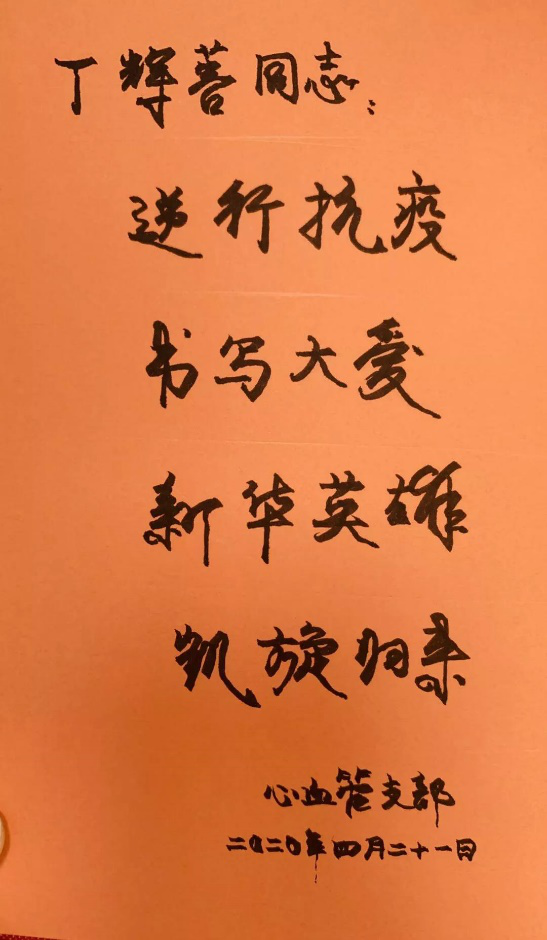 丁辉善同志：
逆行抗疫
书写大爱
新华英雄
凯旋归来
心血管支部
二〇二〇年四月二十一日